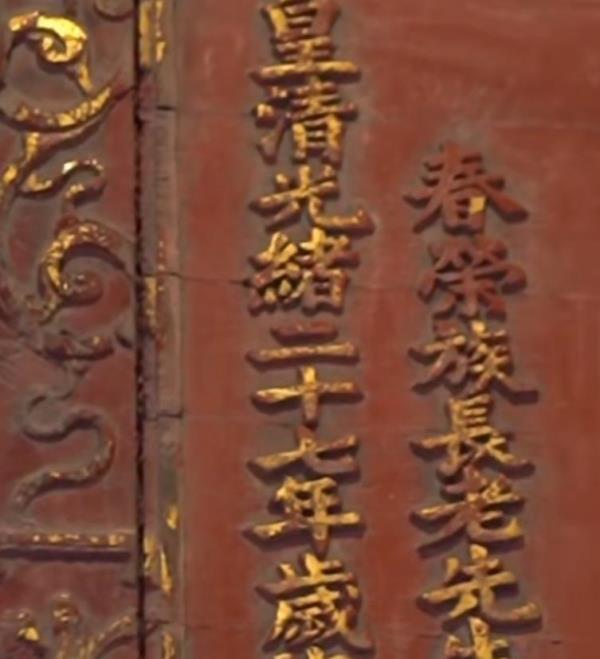 春榮族長老先生
皇清光緒二十七年歲